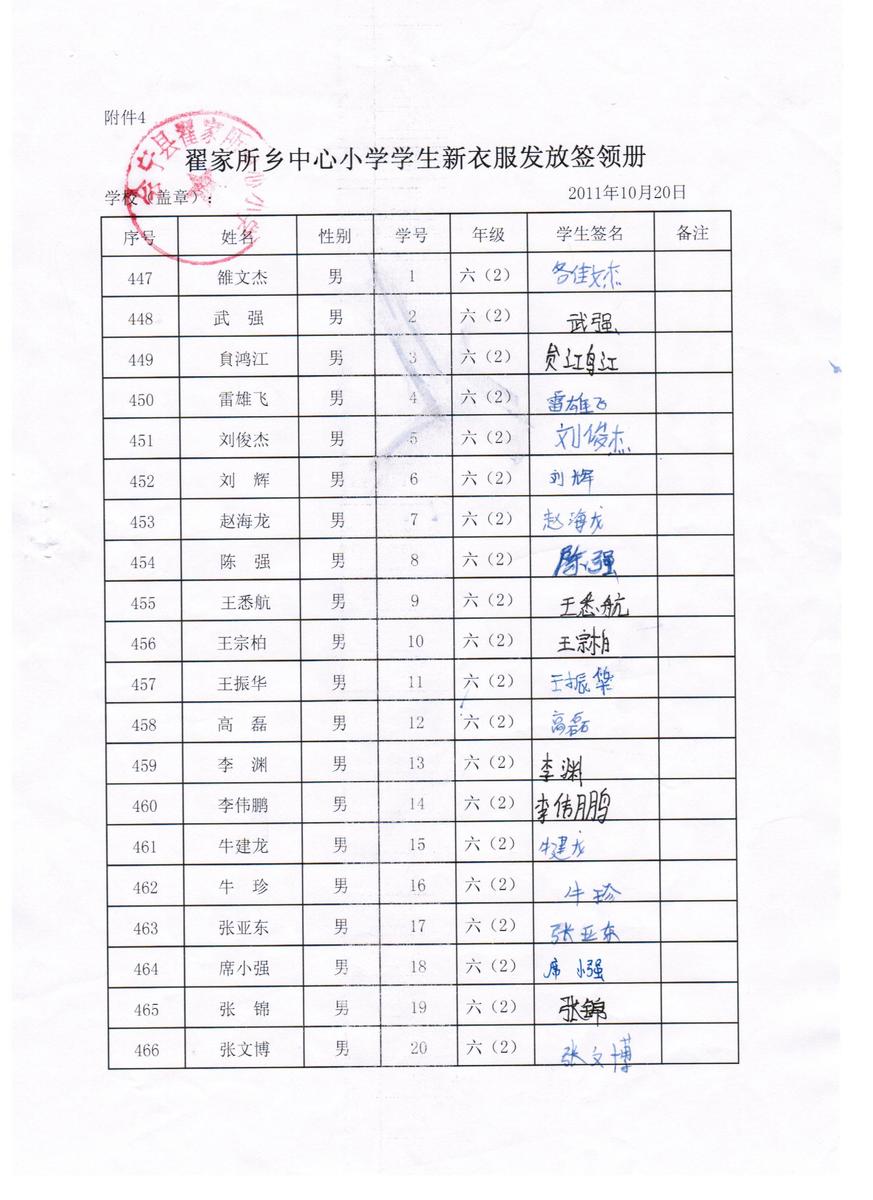 附件4
翟家所乡中心小学学生新衣服发放签领册
学校（盖章）： 2011年10月20日
序号 姓名 性别 学号 年级 学生签名 备注
447 雒文杰 男 1 六（2） 各佳文杰
448 武 强 男 2 六（2） 武强
449 貟鸿江 男 3 六（2） 貟江鸟江
450 雷雄飞 男 4 六（2） 雷雄飞
451 刘俊杰 男 5 六（2） 刘俊杰
452 刘 辉 男 6 六（2） 刘辉
453 赵海龙 男 7 六（2） 赵海龙
454 陈 强 男 8 六（2） 陈强
455 王悉航 男 9 六（2） 王悉航
456 王宗柏 男 10 六（2） 王宗柏
457 王振华 男 11 六（2） 王振华
458 高 磊 男 12 六（2） 高磊
459 李 渊 男 13 六（2） 李渊
460 李伟鹏 男 14 六（2） 李伟鹏
461 牛建龙 男 15 六（2） 牛建龙
462 牛 珍 男 16 六（2） 牛珍
463 张亚东 男 17 六（2） 张亚东
464 席小强 男 18 六（2） 席小强
465 张 锦 男 19 六（2） 张锦
466 张文博 男 20 六（2） 张文博